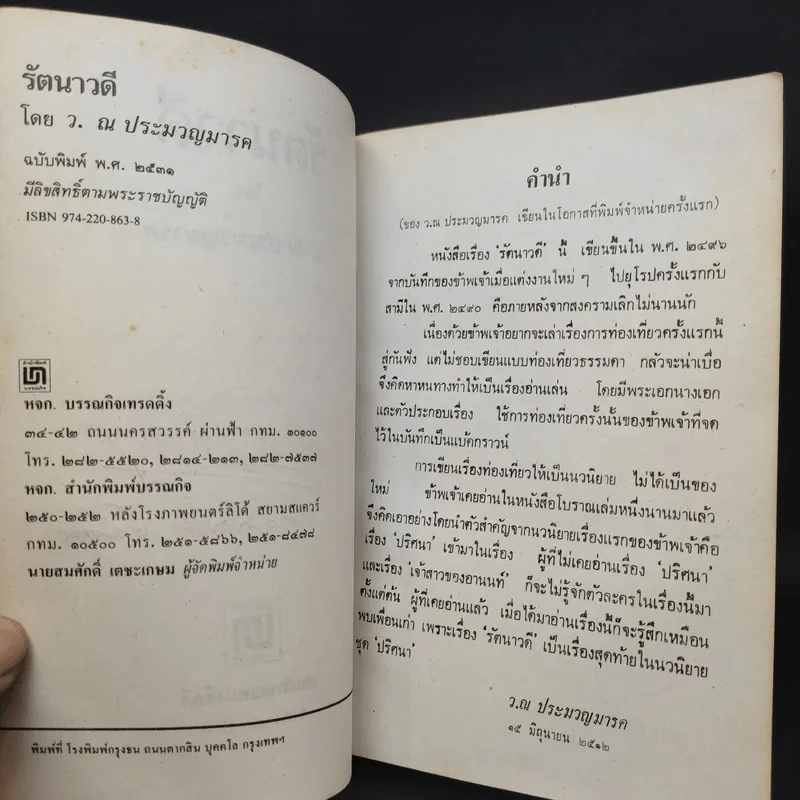 รัตนาวดี
โดย ว. ณ ประมวญมารค
ฉบับพิมพ์ พ.ศ. ๒๕๓๑
มีลิขสิทธิ์ตามพระราชบัญญัติ
ISBN 974-220-863-8
หจก. บรรณกิจเทรดดิ้ง
๓๔-๔๒ ถนนนครสวรรค์ ผ่านฟ้า กทม. ๑๐๑๐๐
โทร. ๒๘๒-๕๕๒๐, ๒๘๑๔-๒๑๓, ๒๘๒-๗๕๓๗
หจก. สำนักพิมพ์บรรณกิจ
๒๕๐-๒๕๒ หลังโรงภาพยนตร์ลิโด้ สยามสแควร์
กทม. ๑๐๕๐๐ โทร. ๒๕๑-๕๘๖๖, ๒๕๑-๘๔๗๘
นายสมศักดิ์ เตชะเกษม ผู้จัดพิมพ์จำหน่าย
พิมพ์ที่ โรงพิมพ์กรุงธน ถนนตากสิน บุคคโล กรุงเทพฯ
คำนำ
(ของ ว.ณ ประมวญมารค เขียนในโอกาสที่พิมพ์จำหน่ายครั้งแรก)
หนังสือเรื่อง ‘รัตนาวดี’ นี้ เขียนขึ้นใน พ.ศ. ๒๔๙๖
จากบันทึกของข้าพเจ้าเมื่อแต่งงานใหม่ ๆ ไปยุโรปครั้งแรกกับ
สามีใน พ.ศ. ๒๔๙๐ คือภายหลังจากสงครามเลิกไม่นานนัก
เนื่องด้วยข้าพเจ้าอยากจะเล่าเรื่องการท่องเที่ยวครั้งแรกนี้
สู่กันฟัง แต่ไม่ชอบเขียนแบบท่องเที่ยวธรรมดา กลัวจะน่าเบื่อ
จึงคิดหาหนทางทำให้เป็นเรื่องอ่านเล่น โดยมีพระเอกนางเอก
และตัวประกอบเรื่อง ใช้การท่องเที่ยวครั้งนั้นของข้าพเจ้าที่จด
ไว้ในบันทึกเป็นแบ๊คกราวน์
การเขียนเรื่องท่องเที่ยวให้เป็นนวนิยาย ไม่ได้เป็นของ
ใหม่ ข้าพเจ้าเคยอ่านในหนังสือโบราณเล่มหนึ่งนานมาแล้ว
จึงคิดเอาอย่างโดยนำตัวสำคัญจากนวนิยายเรื่องแรกของข้าพเจ้าคือ
เรื่อง ‘ปริศนา’ เข้ามาในเรื่อง ผู้ที่ไม่เคยอ่านเรื่อง ‘ปริศนา’
และเรื่อง ‘เจ้าสาวของอานนท์’ ก็จะไม่รู้จักตัวละครในเรื่องนี้มา
ตั้งแต่ต้น ผู้ที่เคยอ่านแล้ว เมื่อได้มาอ่านเรื่องนี้ก็จะรู้สึกเหมือน
พบเพื่อนเก่า เพราะเรื่อง ‘รัตนาวดี’ เป็นเรื่องสุดท้ายในนวนิยาย
ชุด ‘ปริศนา’
ว.ณ ประมวญมารค
๑๕ มิถุนายน ๒๕๑๒